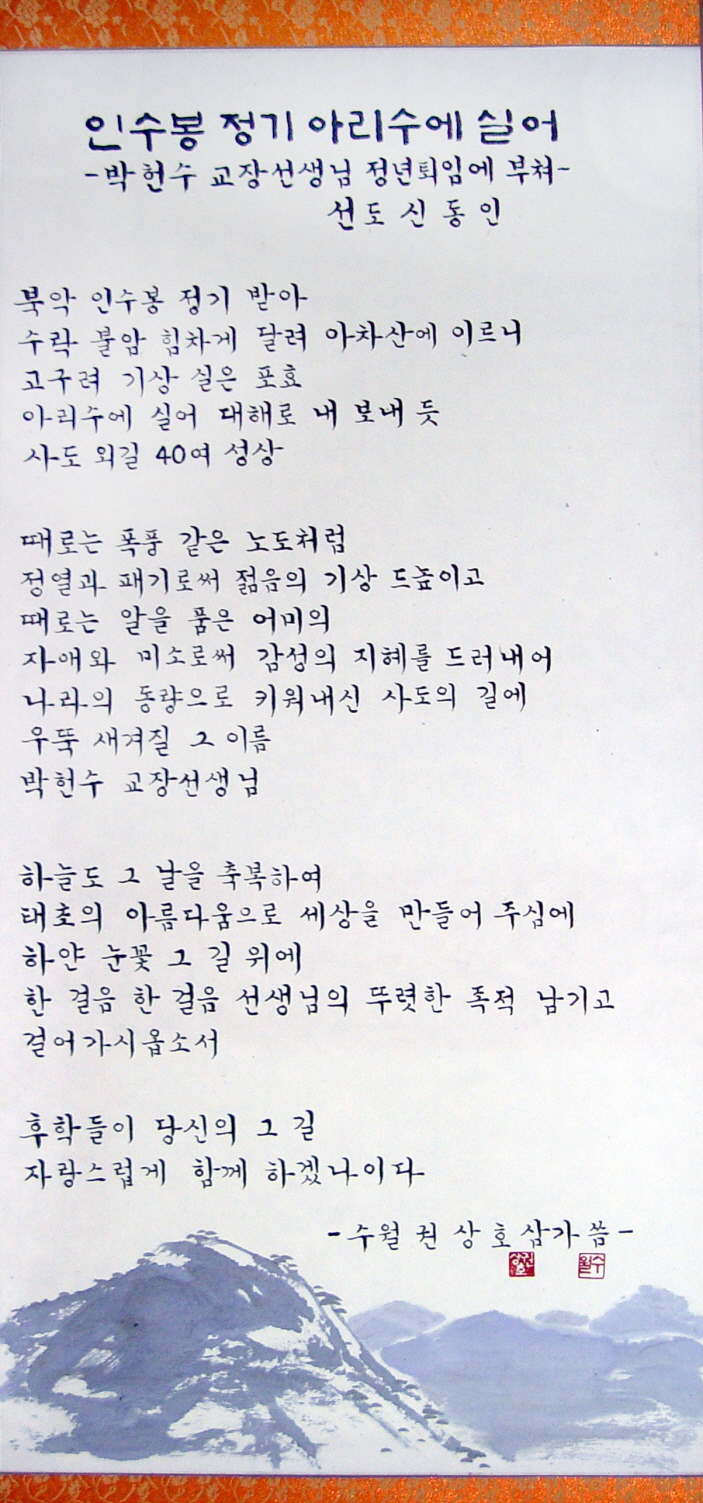 인수봉 정기 아리수에 실어
-박헌수 교장선생님 정년퇴임에 부쳐-
선도 신동인
북악 인수봉 정기 받아
수락 불암 힘차게 달려 아차산에 이르니
고구려 기상 실은 포효
아리수에 실어 대해로 내 보내 듯
사도 외길 40여 성상
때로는 폭풍 같은 노도처럼
정열과 패기로써 젊음의 기상 드높이고
때로는 알을 품은 어미의
자애와 미소로써 감성의 지혜를 드러내어
나라의 동량으로 키워내신 사도의 길에
우뚝 새겨질 그 이름
박헌수 교장선생님
하늘도 그 날을 축복하여
태초의 아름다움으로 세상을 만들어 주심에
하얀 눈꽃 그 길 위에
한 걸음 한 걸음 선생님의 뚜렷한 족적 남기고
걸어가시옵소서
후학들이 당신의 그 길
자랑스럽게 함께 하겠나이다
-수월 권상호 삼가 씀-
권상호 수월